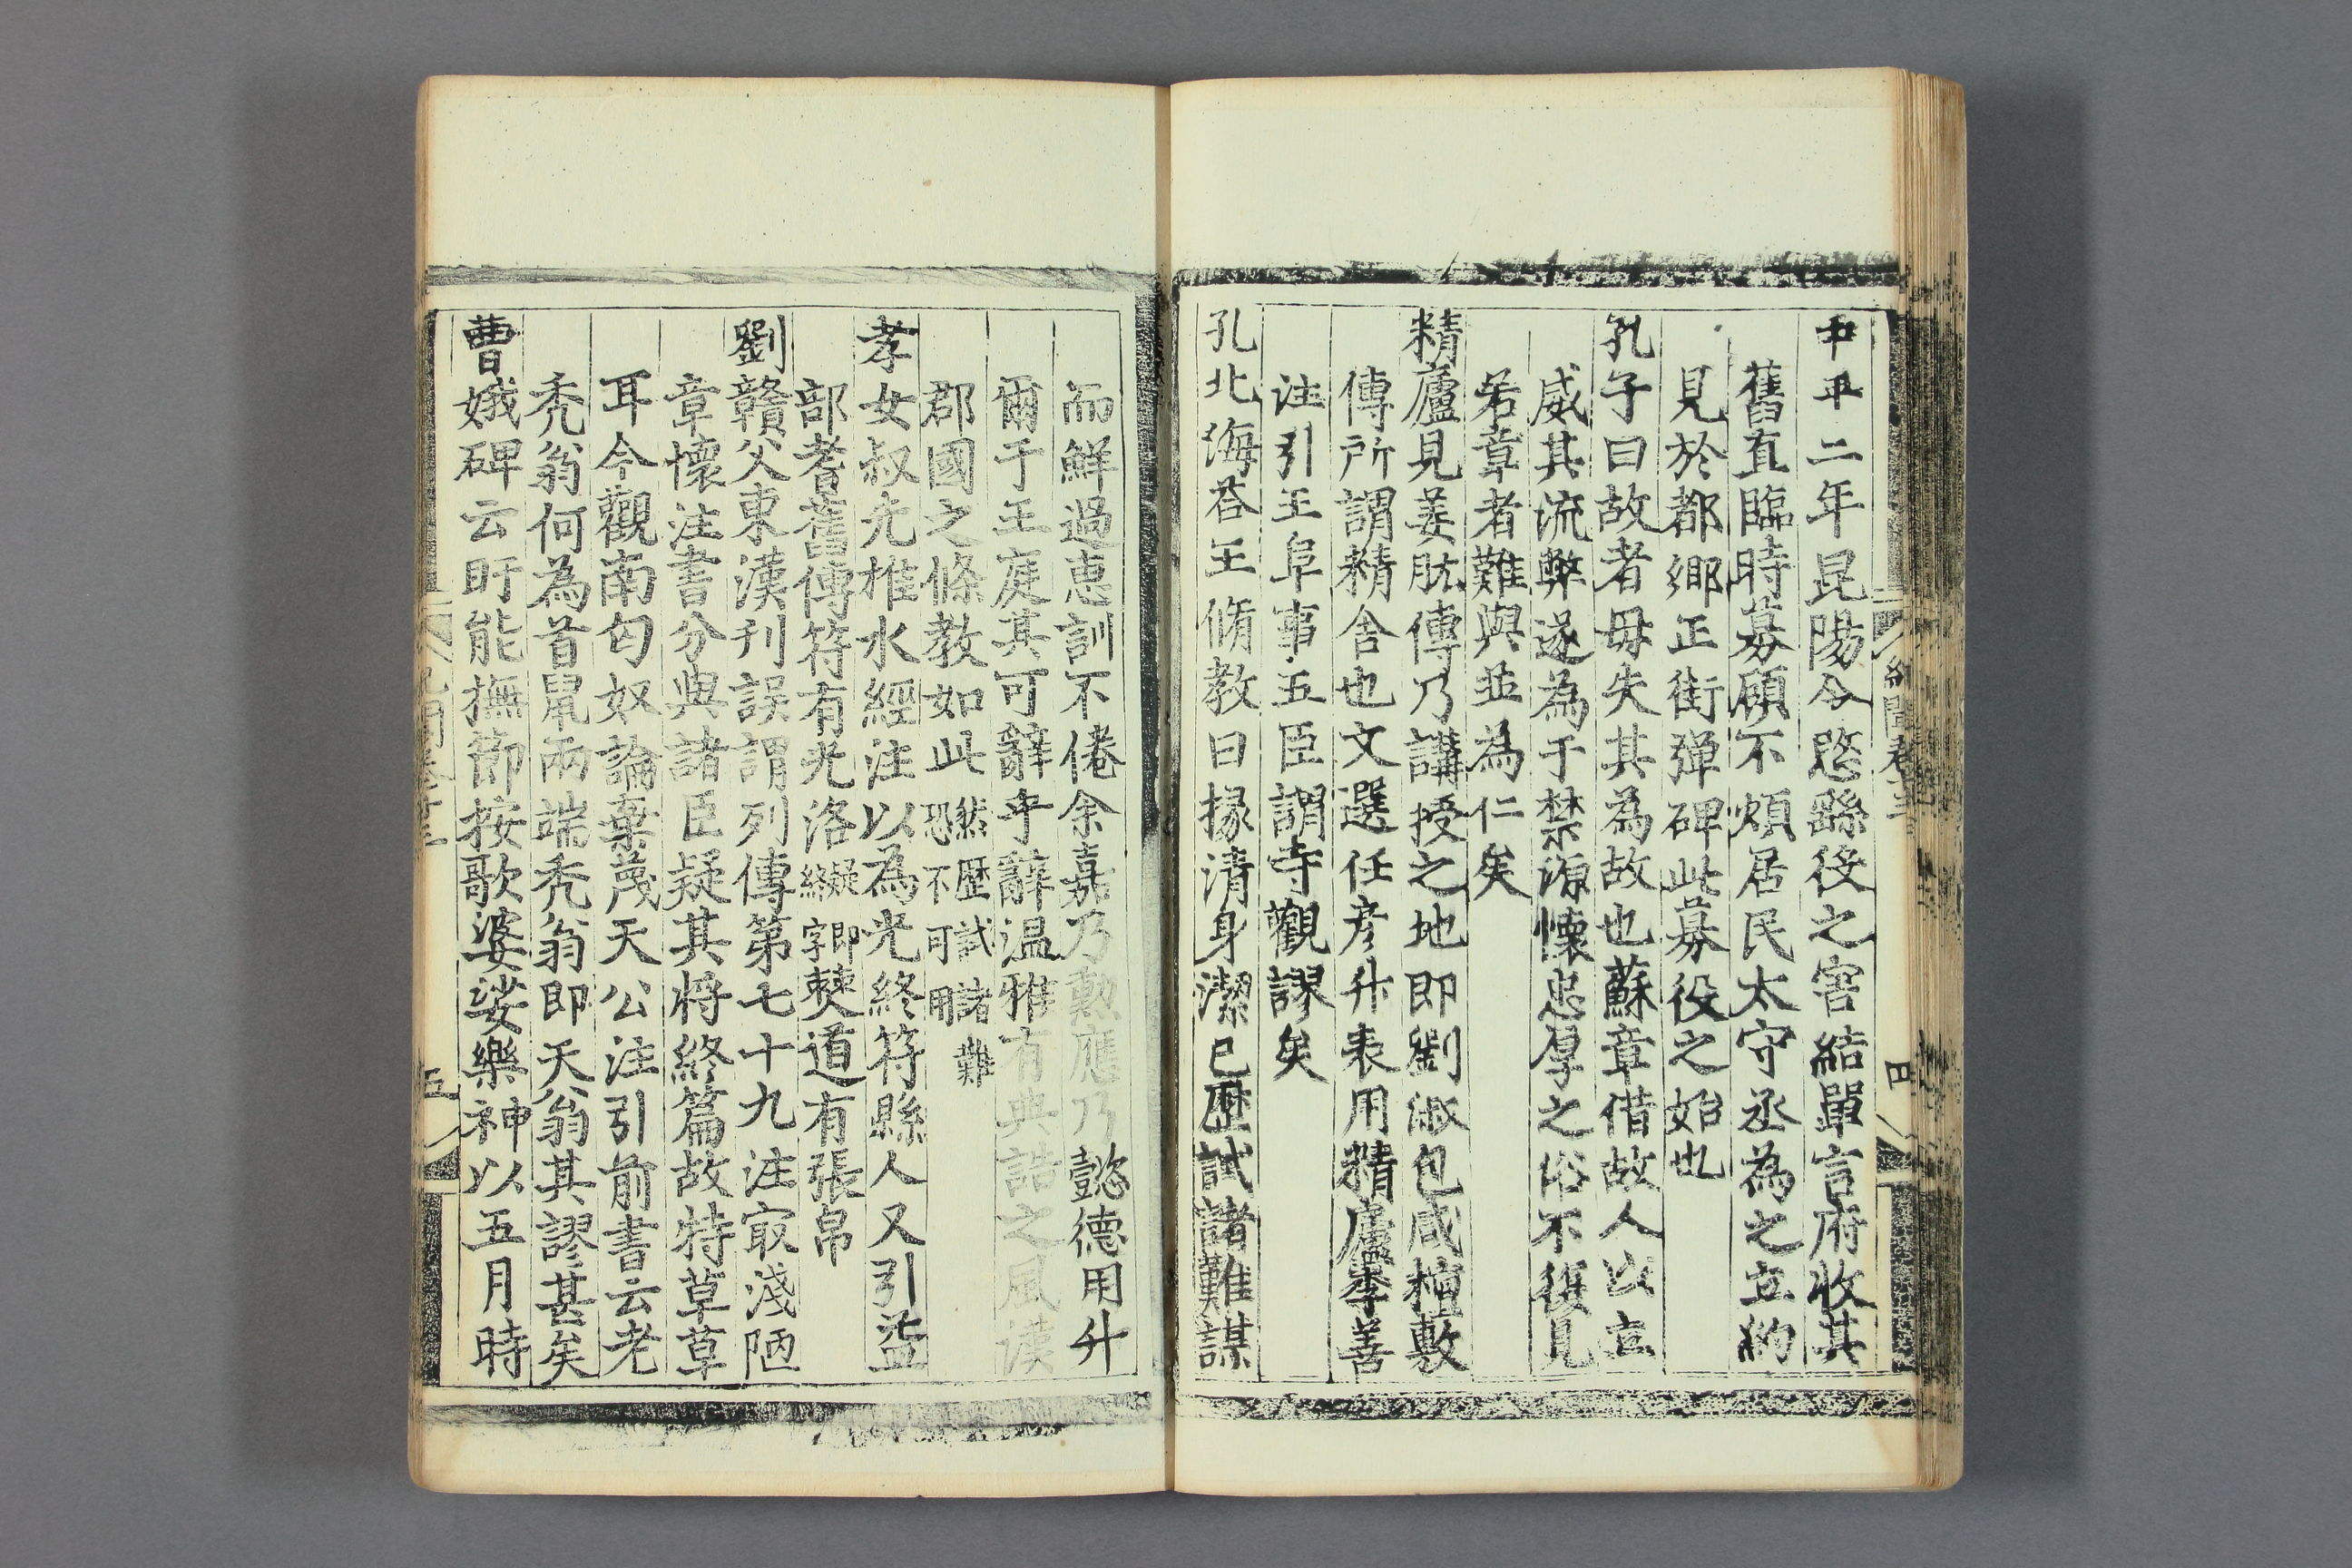 中平二年昆陽令愍繇役之害結單言府收其
舊直臨時募顧不煩居民太守丞為之立約
見於都鄉正街彈碑此募役之始也
孔子曰故者毋失其為故也蘇章借故人以立
威其流弊遂為于禁源懷忠厚之俗不復見
若章者難與並為仁矣
精廬見姜肱傳乃講授之地即劉淑包咸檀敷
傳所謂精舍也文選任彥升表用精廬李善
注引王阜事五臣謂寺觀謬矣
孔北海荅王脩教曰掾清身潔已歷試諸難謀
而鮮過惠訓不倦余嘉乃勲應乃懿德用升
爾于王庭其可辭乎辭温雅有典誥之風漢
郡國之條教如此然歷試諸難恐不可用
孝女叔先雄水經注以為光終符縣人又引益
部耆舊傳符有光洛疑即終字僰道有張帛
劉贛父東漢刊誤謂列傳第七十九注㝡淺陋
章懷注書分與諸臣疑其將終篇故特草草
耳今觀南匈奴論棄蔑天公注引前書云老
秃翁何為首鼠兩端秃翁即天翁其謬甚矣
曹娥碑云盱能撫節按歌婆娑樂神以五月時